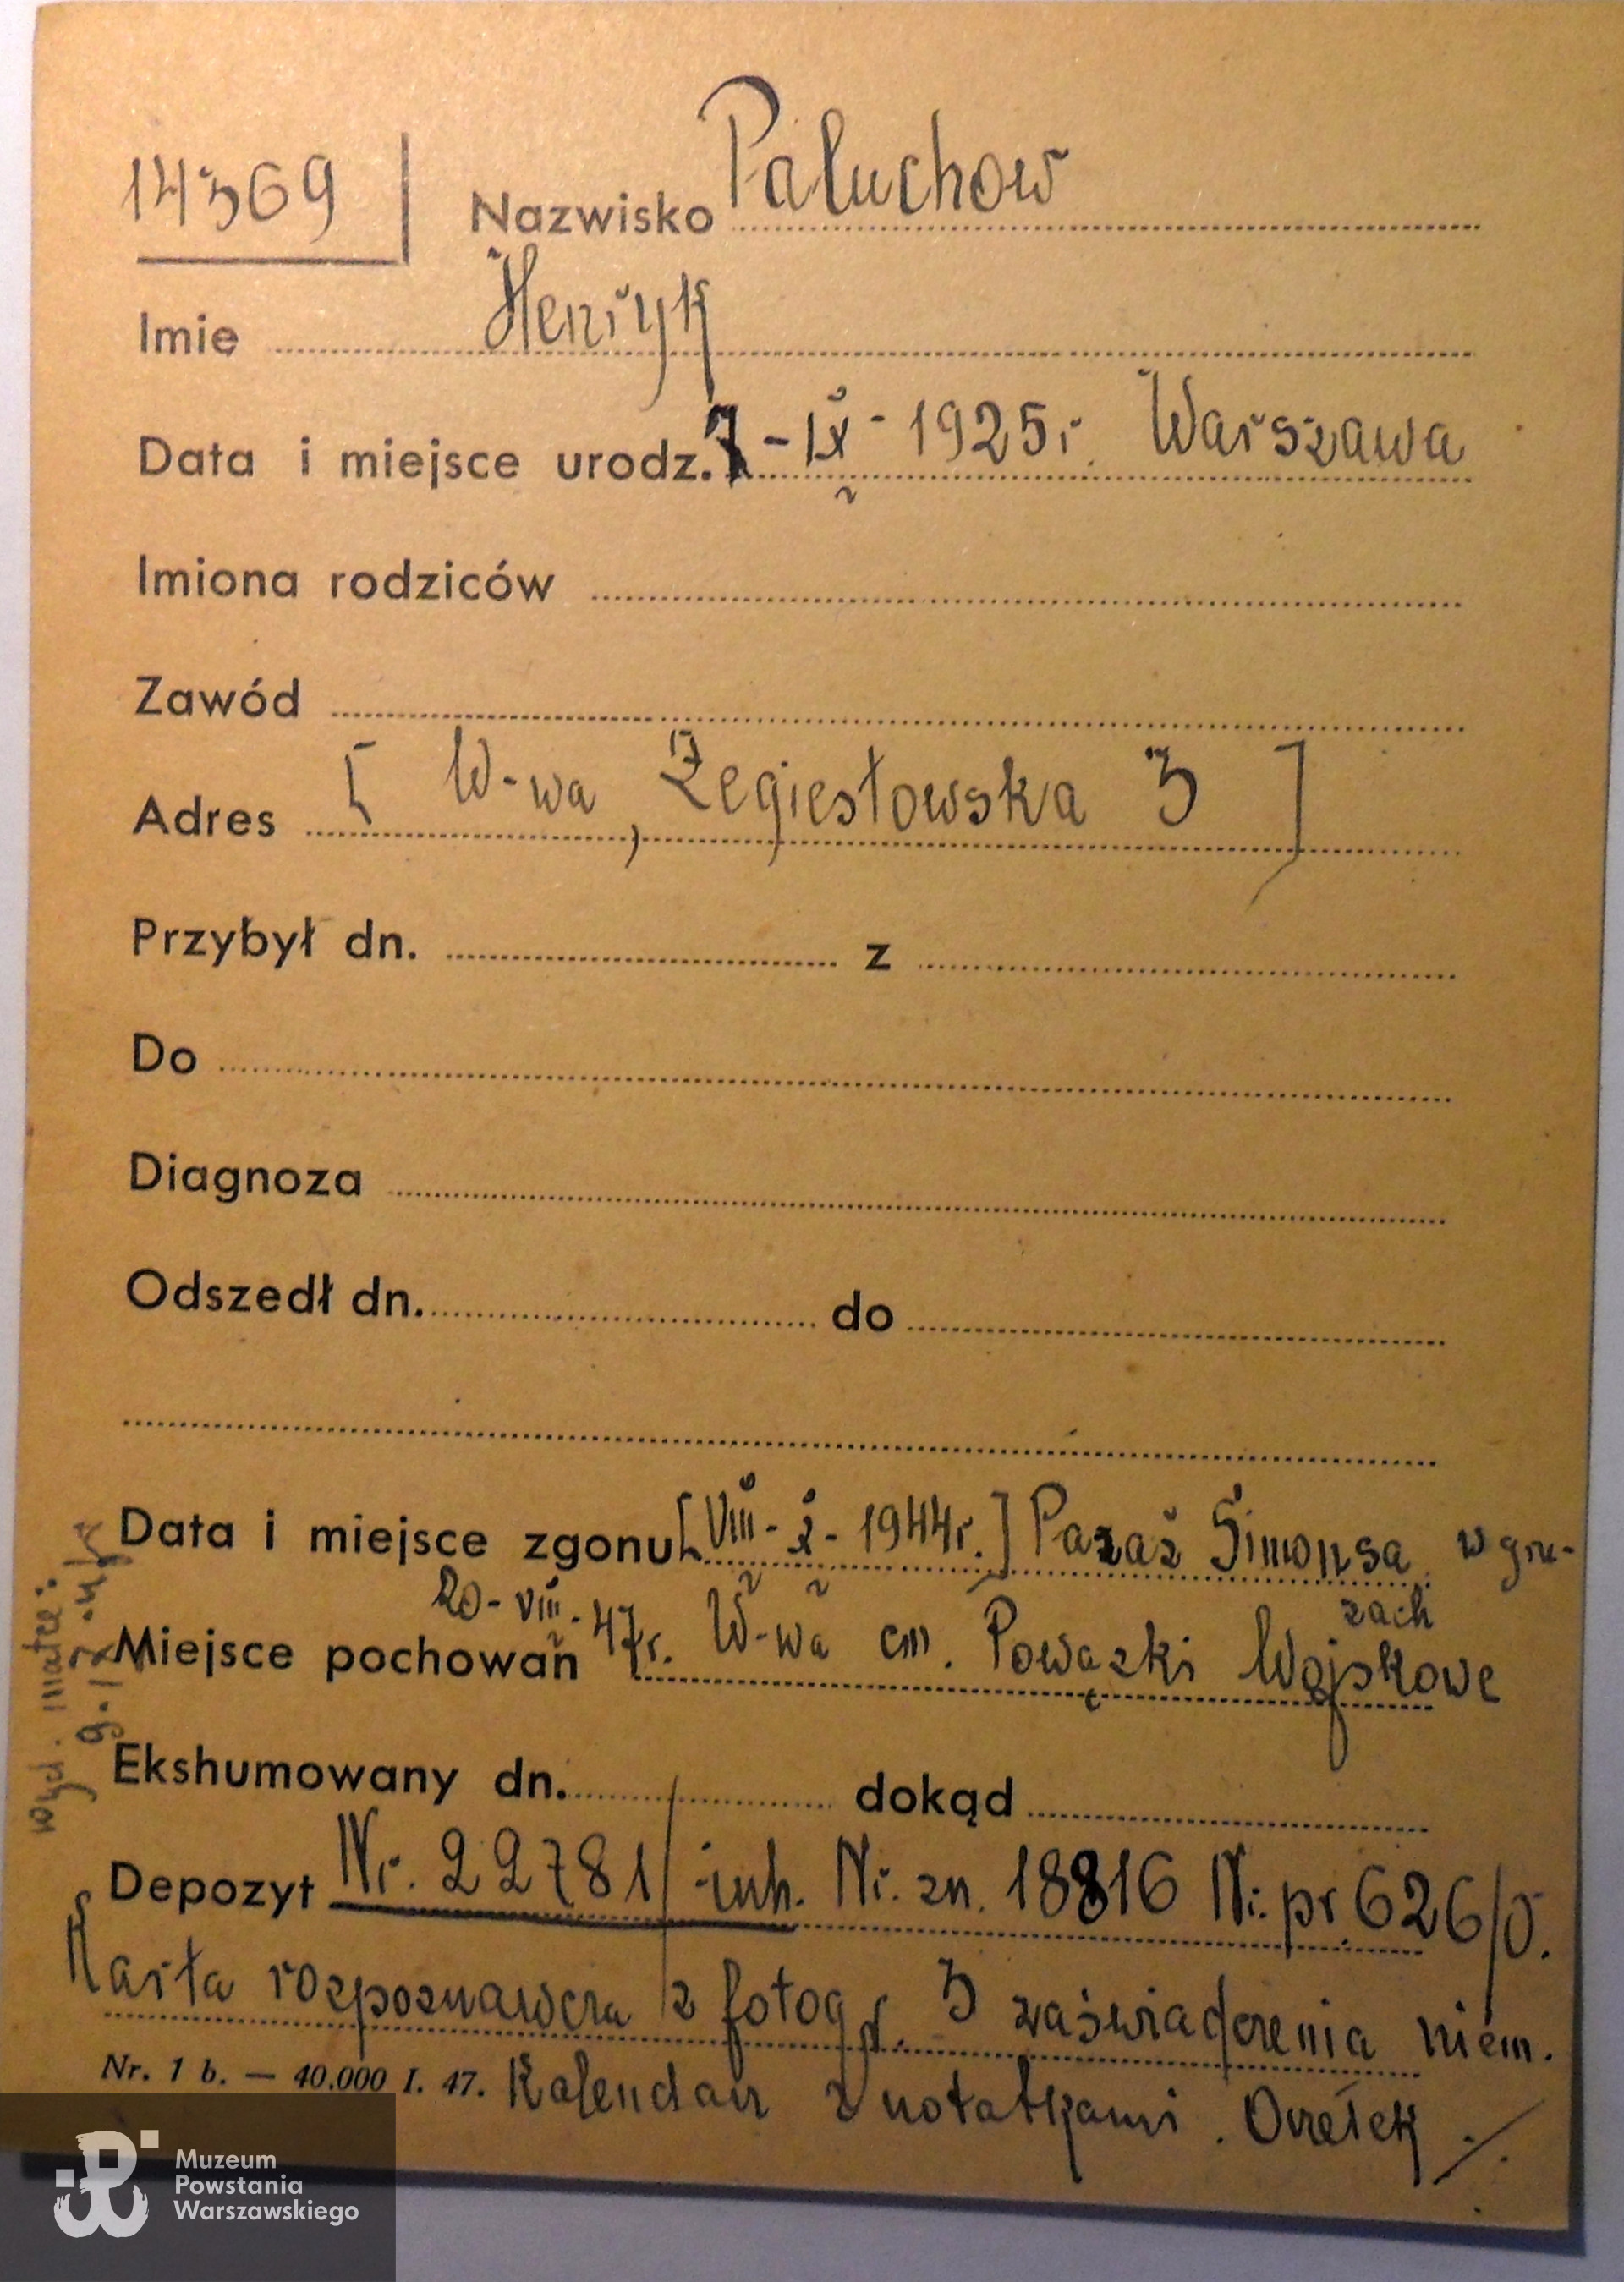 14369
Nazwisko Paluchow
Imię Henryk
Data i miejsce urodz. 7-IX-1925r. Warszawa
Imiona rodziców
Zawód
Adres [ W-wa, Żegiestowska 3 ]
Przybył dn. z
Do
Diagnoza
Odszedł dn. do
Data i miejsce zgonu [VIII-X-1944r.] Pasaż Simonsa w gru-
zach
20-VIII-47r.
Miejsce pochowań W-wa cm. Powązki Wojskowe
Ekshumowany dn. dokąd
Depozyt Nr. 22781/inh. Nr. zn. 18816 Nr. pr 626/
Karta rozpoznawcza z fotogr. 3 zaświadczenia niem.
Nr. 1 b. — 40.000 I. 47. Kalendarz z notatkami. Orzełek
wyd. matce:
Muzeum
Powstania
Warszawskiego